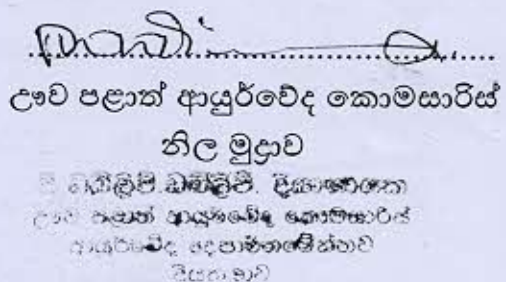 ඌව පළාත් ආයුර්වේද කොමසාරිස්
නිල මුද්‍රාව
ඩබ්ලිව්.
ඌව පළාත් ආයුර්වේද කොමසාරිස්
ආයුර්වේද දෙපාර්තමේන්තුව